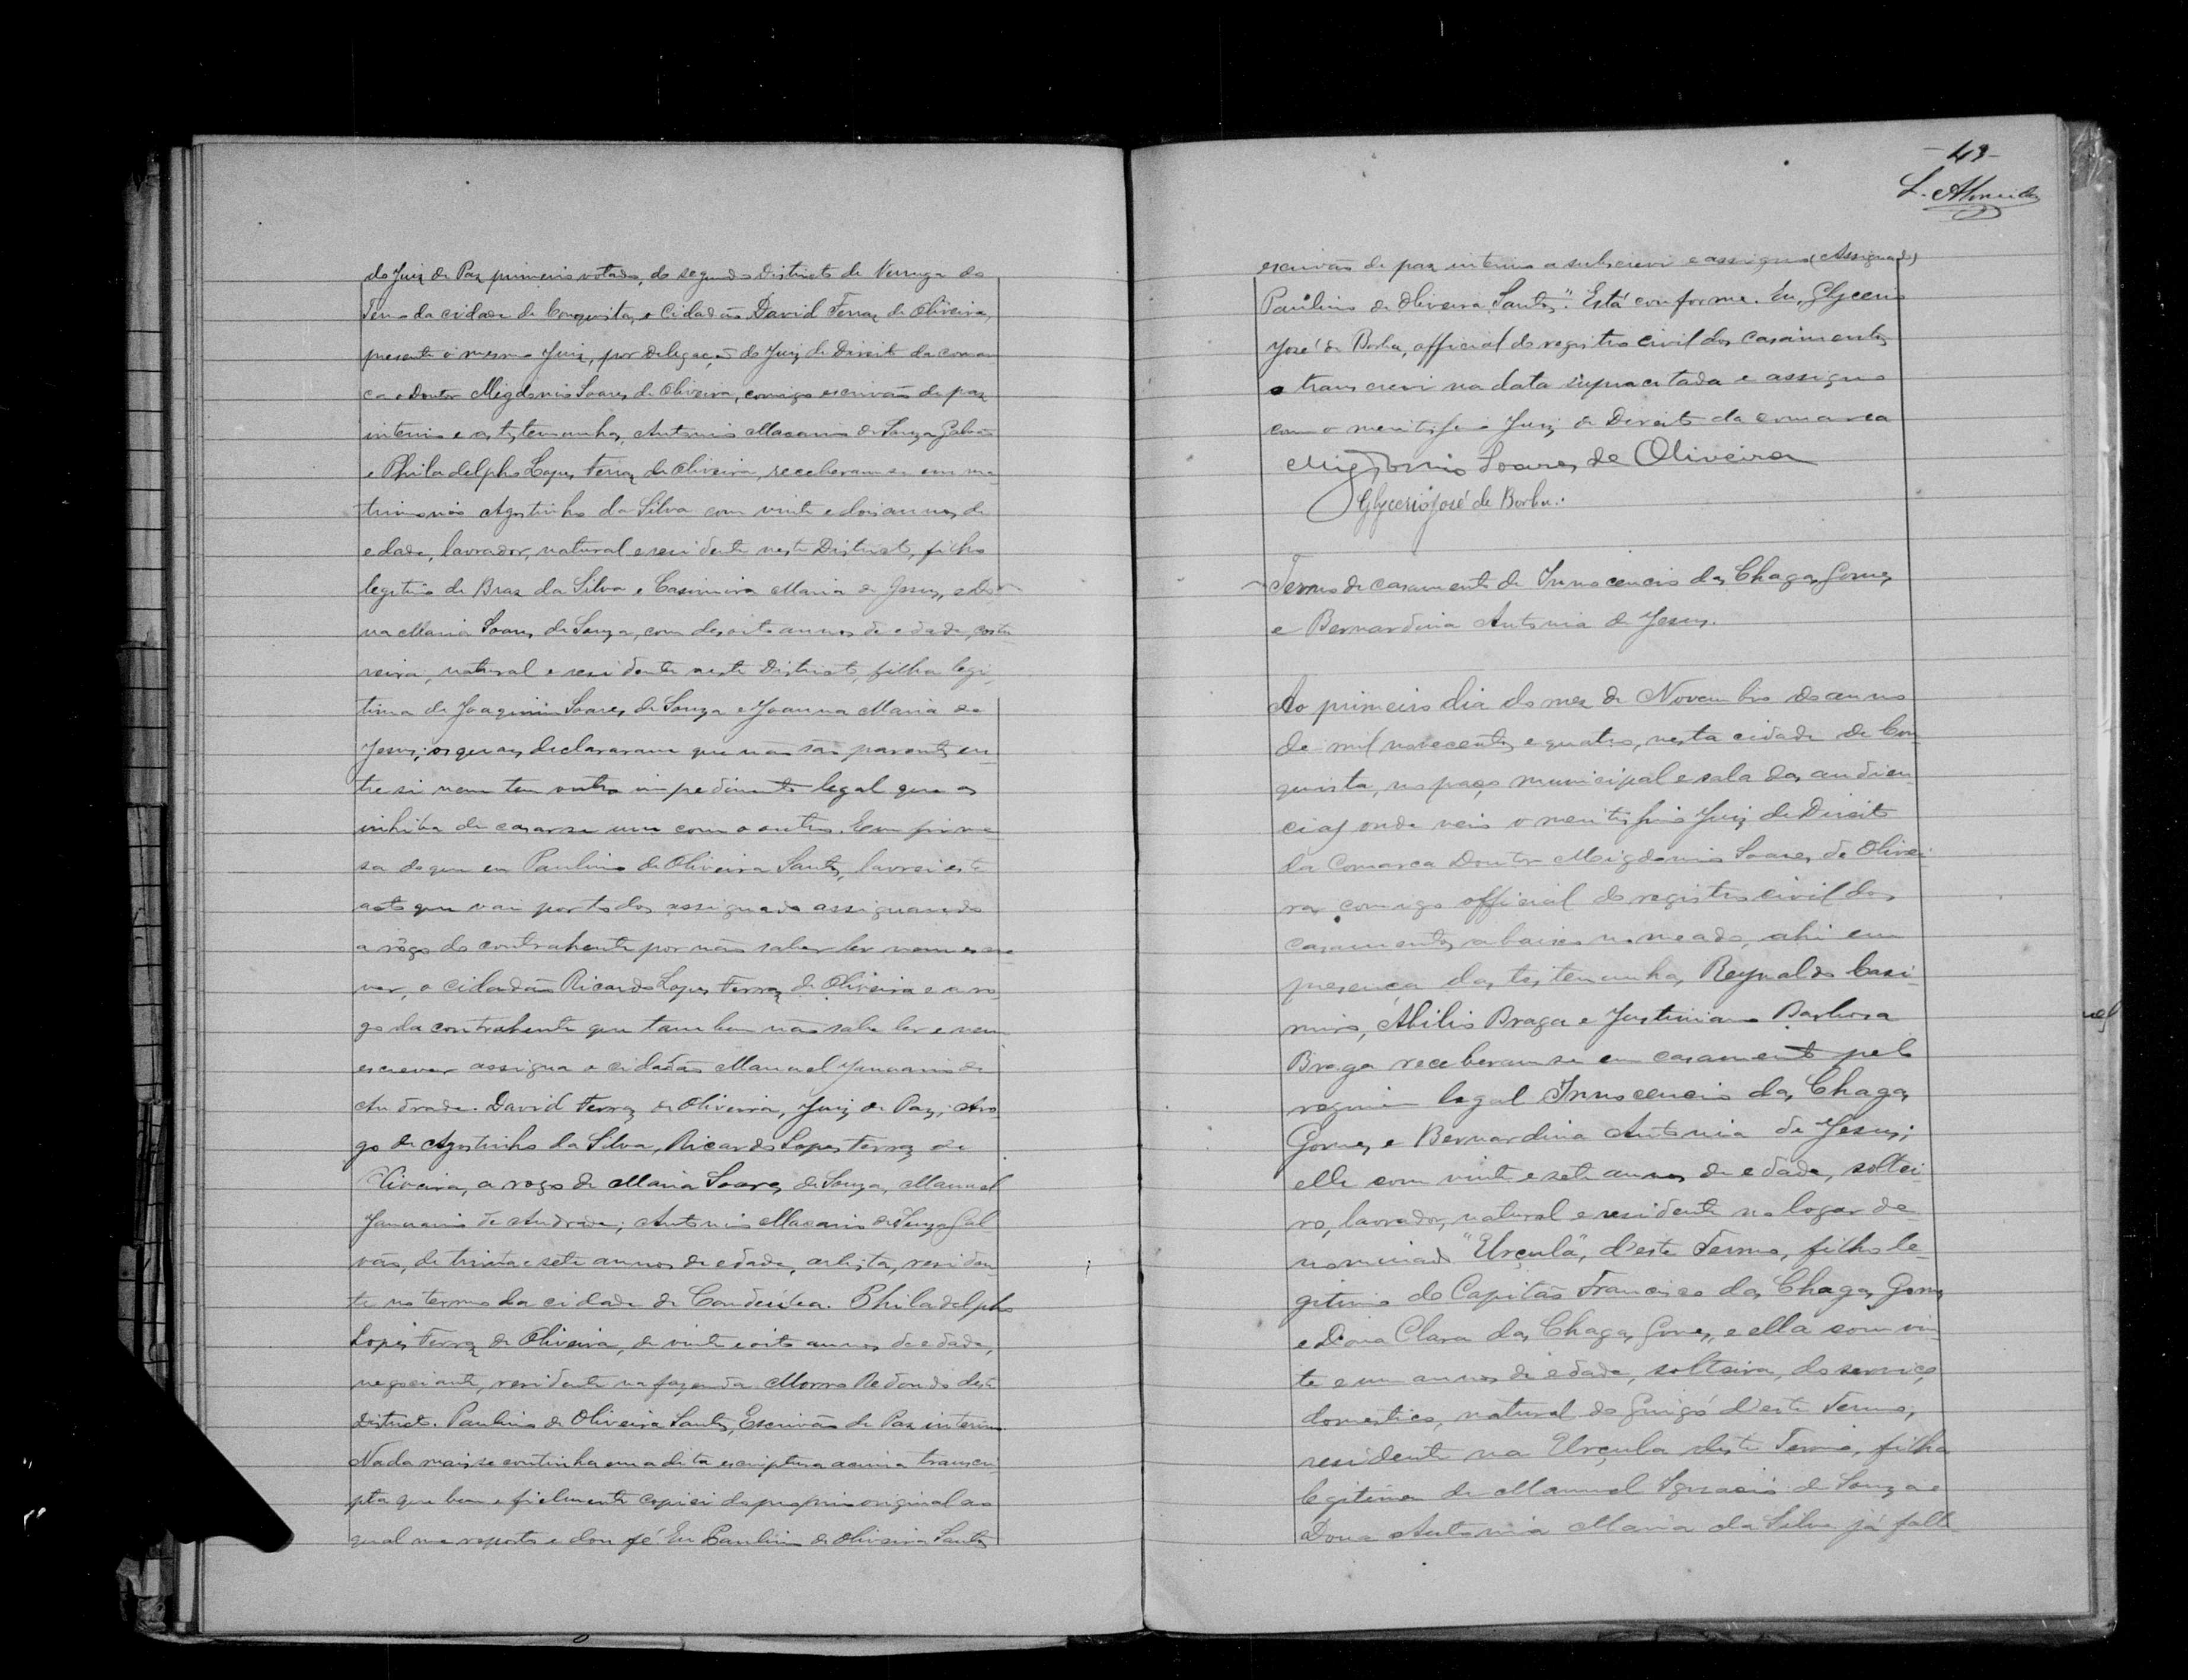 do Juiz de Paz primeiro votado, do segundo Districto de Verruga do
Termo da cidade de Conquista, o Cidadão David Ferraz de Oliveira,
presente o mesmo Juiz, por delegação do Juiz de Direito da comar
ca o Doutor Migdonio Soares de Oliveira, comigo escrivão de paz
interino e as testemunhas, Antonio Macario de Souza Galvão
e Philadelpho Lopes Ferraz de Oliveira, receberam-se em ma
trimonio Agostinho da Silva com vinte e dois annos de
edade, lavrador, natural e residente neste Districto, filho
legitimo de Braz da Silva e Casimira Maria de Jesus, e Do
na Maria Soares de Souza, com desoito annos de edade, costu
reira, natural e residente neste Districto, filha legi
tima de Joaquim Soares de Souza e Joanna Maria de
Jesus; os quaes declararam que não são parentes en
tre si nem tem outro impedimento legal que os
inhiba de casar-se um com o outro. Em firme
sa do que eu Paulino de Oliveira Santos, lavrei este
acto que vai por todos assignado assignando
a rôgo do contrahente por não saber ler nem escre
ver, o cidadão Ricardo Lopes Ferraz de Oliveira e a ro
go da contrahente que tambem não sabe ler e nem
escrever assigna o cidadão Manuel Januario de
Andrade. David Ferraz de Oliveira, Juiz de Paz; Aro
go de Agostinho da Silva, Ricardo Lopes Ferraz de
Oliveira, a rogo de Maria Soares de Souza, Manuel
Januario de Andrade; Antonio Macario de Souza Gal
vão, de trinta e sete annos de edade, artista, residen
te no termo da cidade de Condeúba. Philadelpho
Lopes Ferraz de Oliveira, de vinte e oito annos de edade,
negociante, residente na fazenda Morro Redondo deste
Districto. Paulino de Oliveira Santos, Escrivão de Paz interino.
Nada mais se continha em a dita escriptura acima transcri
pta que bem e fielmente copiei do proprio original ao
qual me reporto e dou fé. Eu Paulino de Oliveira Santos
- 49 -
L. Almeida
escrivão de paz interino a subscrevi e assigno (Assignado)
Paulino de Oliveira Santos". Está conforme. Eu, Glycerio
José de Borba, official do registro civil dos casamentos
o transcrevi na data supracitada e assigno
com o meritissimo Juiz de Direito da comarca
Migdonio Soares de Oliveira
Glycerio José de Borba.
Termo de casamento de Innocencio das Chagas Gomes
e Bernardina Antonia de Jesus.
Ao primeiro dia do mez de Novembro do anno
de mil novecentos e quatro, nesta cidade de Con
quista, no paço municipal e sala das audien
cias onde veio o meritissimo Juiz de Direito
da Comarca Doutor Migdonio Soares de Olivei
ra comigo official do registro civil dos
casamentos abaixo nomeado, ahi em
presença das testemunhas Reynaldo Casi-
miro, Abilio Braga e Justiniano Barbosa
Braga receberam-se em casamento pelo
regimen legal Innocencio das Chagas
Gomes e Bernardina Antonia de Jesus;
elle com vinte e sete annos de edade, soltei
ro, lavrador, natural e residente no logar de
nominado "Urçula", d'este Termo, filho le-
gitimo do Capitão Francisco das Chagas Gomes
e Dona Clara das Chagas Gomes, e ella com vin
te e um annos de edade, solteira, do serviço
domestico, natural do Guigó d'este Termo,
residente na Urçula deste Termo, filha
legitima de Manuel Ignacio de Souza e
Dona Antonia Maria da Silva já falle